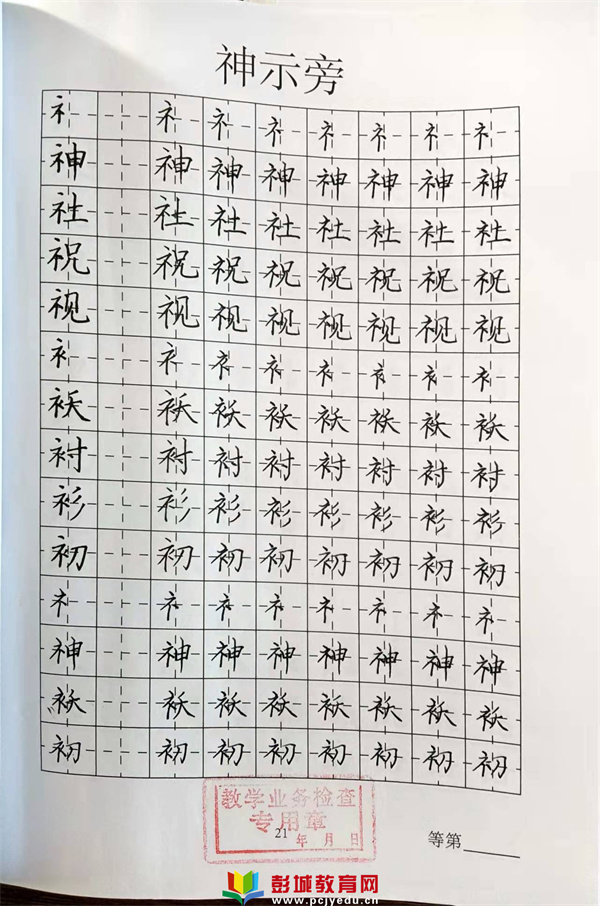 神示旁
礻 礻 礻 礻 礻 礻 礻 礻
神 神 神 神 神 神 神 神
社 社 社 社 社 社 社 社
祝 祝 祝 祝 祝 祝 祝 祝
视 视 视 视 视 视 视 视
衤 衤 衤 衤 衤 衤 衤 衤
袄 袄 袄 袄 袄 袄 袄 袄
衬 衬 衬 衬 衬 衬 衬 衬
衫 衫 衫 衫 衫 衫 衫 衫
初 初 初 初 初 初 初 初
礻 礻 礻 礻 礻 礻 礻 礻
神 神 神 神 神 神 神 神
袄 袄 袄 袄 袄 袄 袄 袄
初 初 初 初 初 初 初 初
教学业务检查
专用章
21 年 月 日
等第
彭城教育网
www.pcjyedu.cn